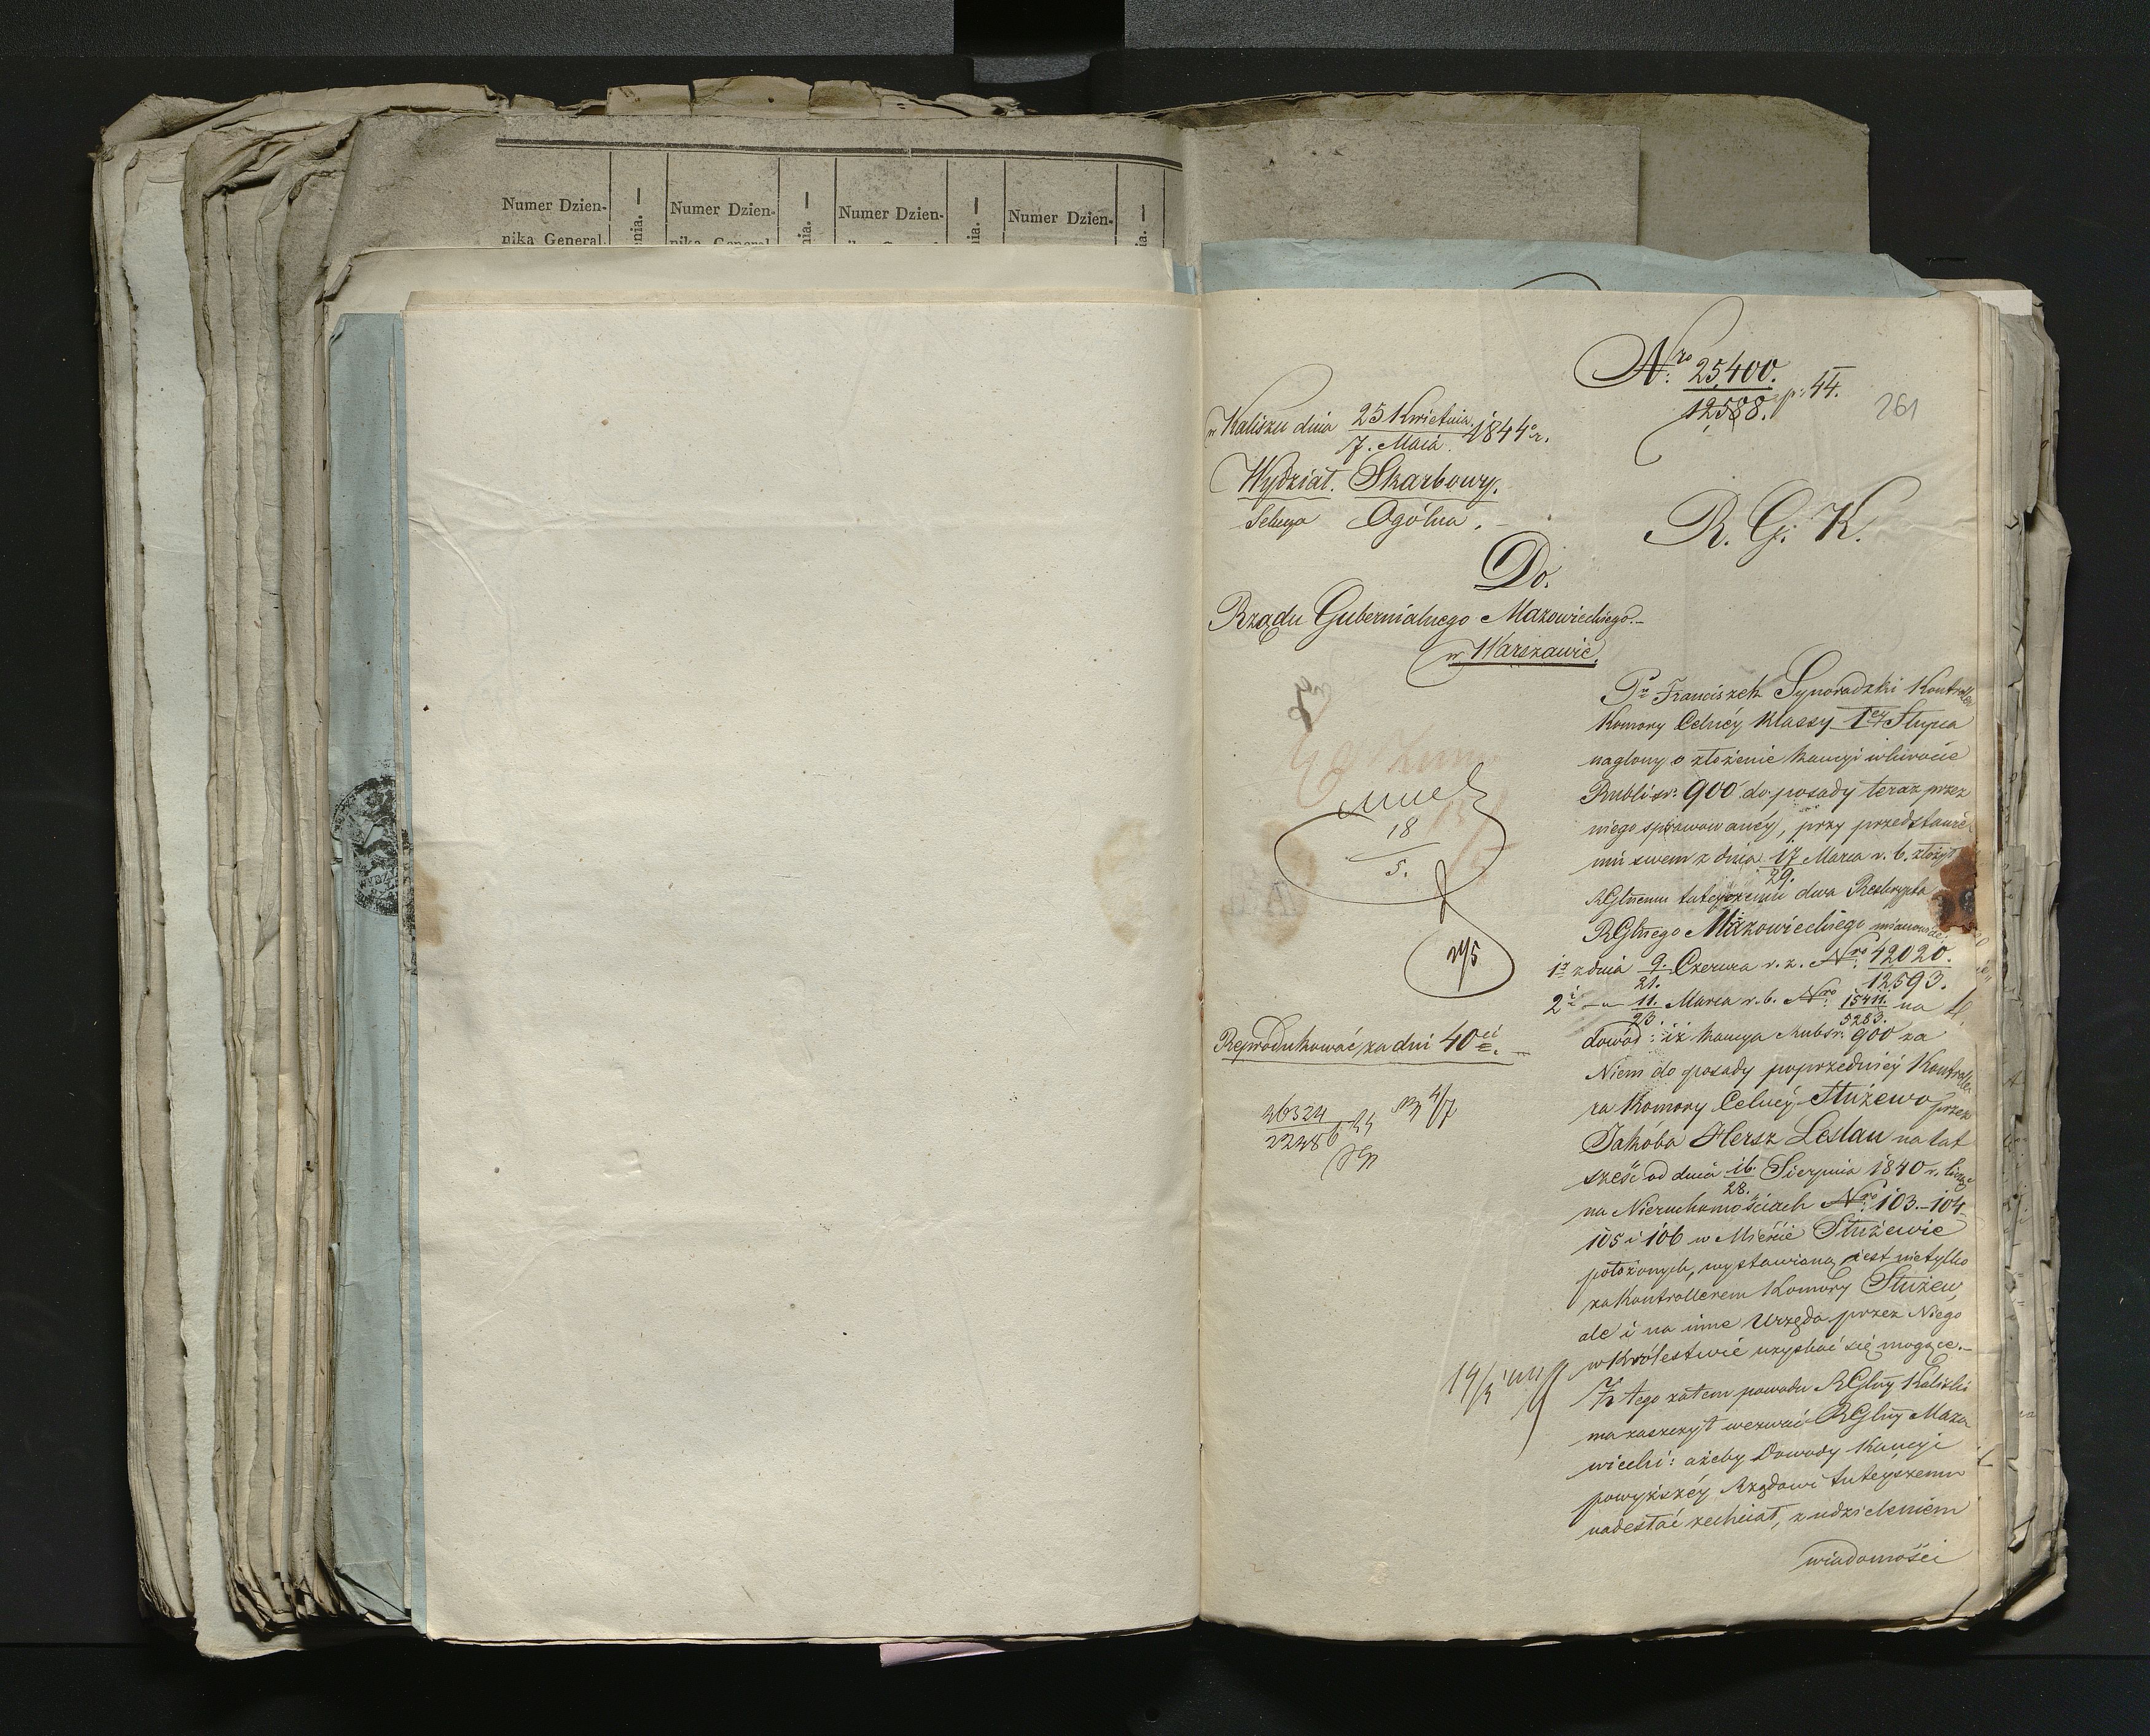 Numer Dzien- Numer Dzien- Numer Dzien- Numer Dzien-
nika General.
Nro: 25,400.
12,588. p: 44.
261
w Kaliszu dnia 25 Kwietnia
7. Maia 1844 r.
Wydział Skarbowy.
Sekcya Ogólna.
R. G: K.
Do.
Rządu Gubernialnego Mazowieckiego.-
w Warszawie.
Pn Franciszek Synoradzki Kontroller
Komory Celnéy Klassy 1ey Słupca
naglony o złożenie kaucyi w kwocie
Rubli sr: 900 do posady teraz przez
niego sprawowanéy, przy przedstawie
niu swem z dnia 17 Marca r. b. złożył
29.
RGlnemu tuteyszemu dwa Reskrypta
RGlnego Mazowieckiego mianowicie
1o z dnia 9. Czerwca r. z. Nro: 42020.
21. 12593.
2o — „ — 11. Marca r. b. Nro: 15411. na
23. 5283.
dowód: iż kaucya Rubsr: 900 za
Niem do posady poprzedniéy Kontrolle
ra Komory Celnéy Służewo przez
Jakóba Hersz Leslau na lat
sześć od dnia 16. Sierpnia 1840 r. licząc
28.
na Nieruchomościach Nro: 103.-104
105 i 106 w Mieście Służewie
położonych, wystawiona, iest nietylko
za Kontrollerem Komory Służew,
ale i na inne Urzęda przez Niego
w Królestwie uzyskać się mogące.-
Z tego zatem powodu RGlny Kaliski
ma zaszczyt wezwać RGlny Mazo
wiecki: ażeby Dowody Kaucyi
powyższéy Rządowi tuteyszemu
nadesłać zechciał, z udzieleniem
wiadomości
18
5.
Reprodukować za dni 40ci.
46324